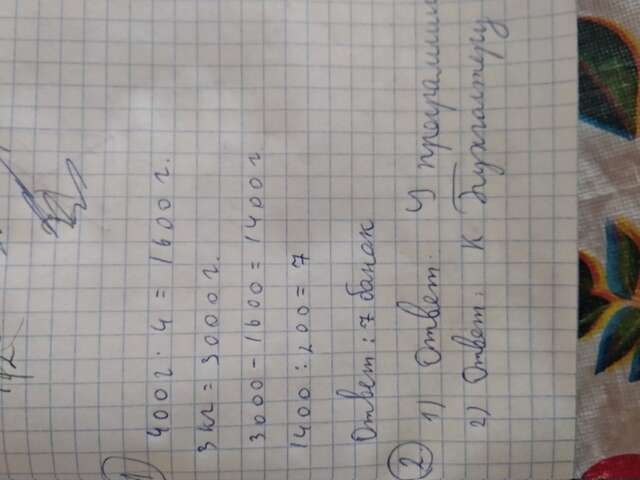 1)
400г · 4 = 1600 г.
3 кг = 3000 г.
3000 - 1600 = 1400 г
1400 : 200 = 7
Ответ : 7 банок
2) 1) Ответ. У
2) Ответ. К Бухгалтеру